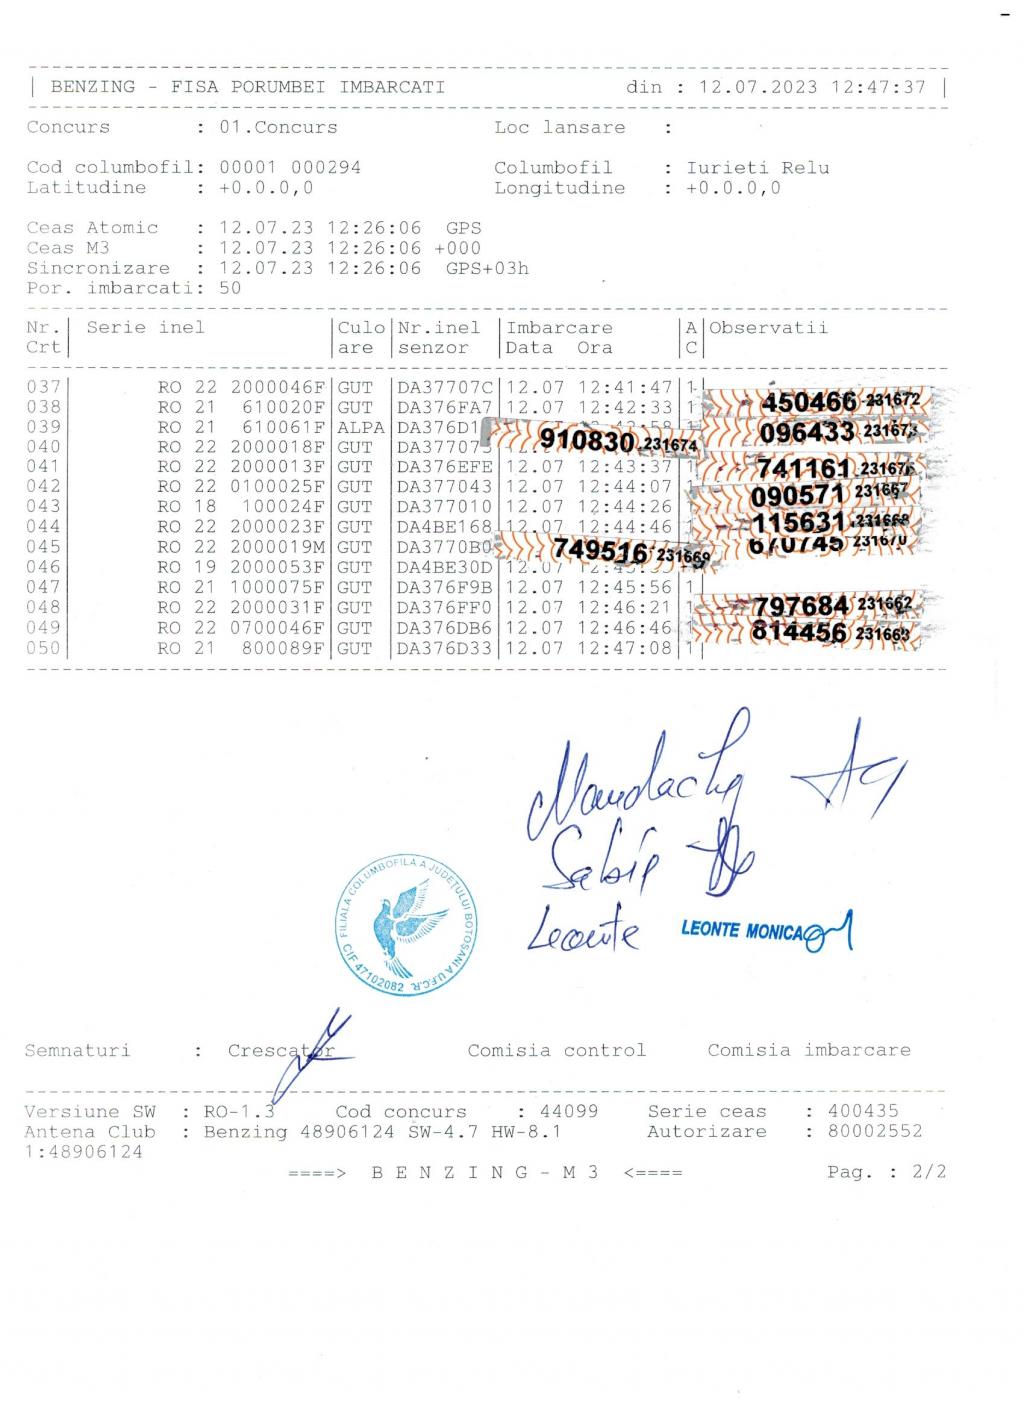 BENZING - FISA PORUMBEI IMBARCATI din : 12.07.2023 12:47:37
Concurs : 01.Concurs Loc lansare :
Cod columbofil: 00001 000294 Columbofil : Iurieti Relu
Latitudine : +0.0.0,0 Longitudine : +0.0.0,0
Ceas Atomic : 12.07.23 12:26:06 GPS
Ceas M3 : 12.07.23 12:26:06 +000
Sincronizare : 12.07.23 12:26:06 GPS+03h
Por. imbarcati: 50
Nr. Serie inel Culo Nr.inel Imbarcare A Observatii
Crt are senzor Data Ora C
037 RO 22 2000046F GUT DA37707C 12.07 12:41:47 1
038 RO 21 610020F GUT DA376FA7 12.07 12:42:33 1 450466 231672
039 RO 21 610061F ALPA DA376D1 910830 231674 096433
040 RO 22 2000018F GUT DA37707
041 RO 22 2000013F GUT DA376EFE 12.07 12:43:37 1 741161
042 RO 22 0100025F GUT DA377043 12.07 12:44:07 090571 231667
043 RO 18 100024F GUT DA377010 12.07 12:44:26
044 RO 22 2000023F GUT DA4BE168 12.07 12:44:46 115631 231668
045 RO 22 2000019M GUT DA3770B0 749516 231669 670745 231670
046 RO 19 2000053F GUT DA4BE30D 12.07
047 RO 21 1000075F GUT DA376F9B 12.07 12:45:56 1
048 RO 22 2000031F GUT DA376FF0 12.07 12:46:21 1 797684 231662
049 RO 22 0700046F GUT DA376DB6 12.07 12:46:46 814456 231663
050 RO 21 800089F GUT DA376D33 12.07 12:47:08 1
Leonte LEONTE MONICA
FILIALA COLUMBOFILA A JUDETULUI BOTOȘANI A U.F.C.R.
CIF 47102082
Semnaturi : Crescator Comisia control Comisia imbarcare
Versiune SW : RO-1.3 Cod concurs : 44099 Serie ceas : 400435
Antena Club : Benzing 48906124 SW-4.7 HW-8.1 Autorizare : 80002552
1:48906124
====> B E N Z I N G - M 3 <==== Pag. : 2/2